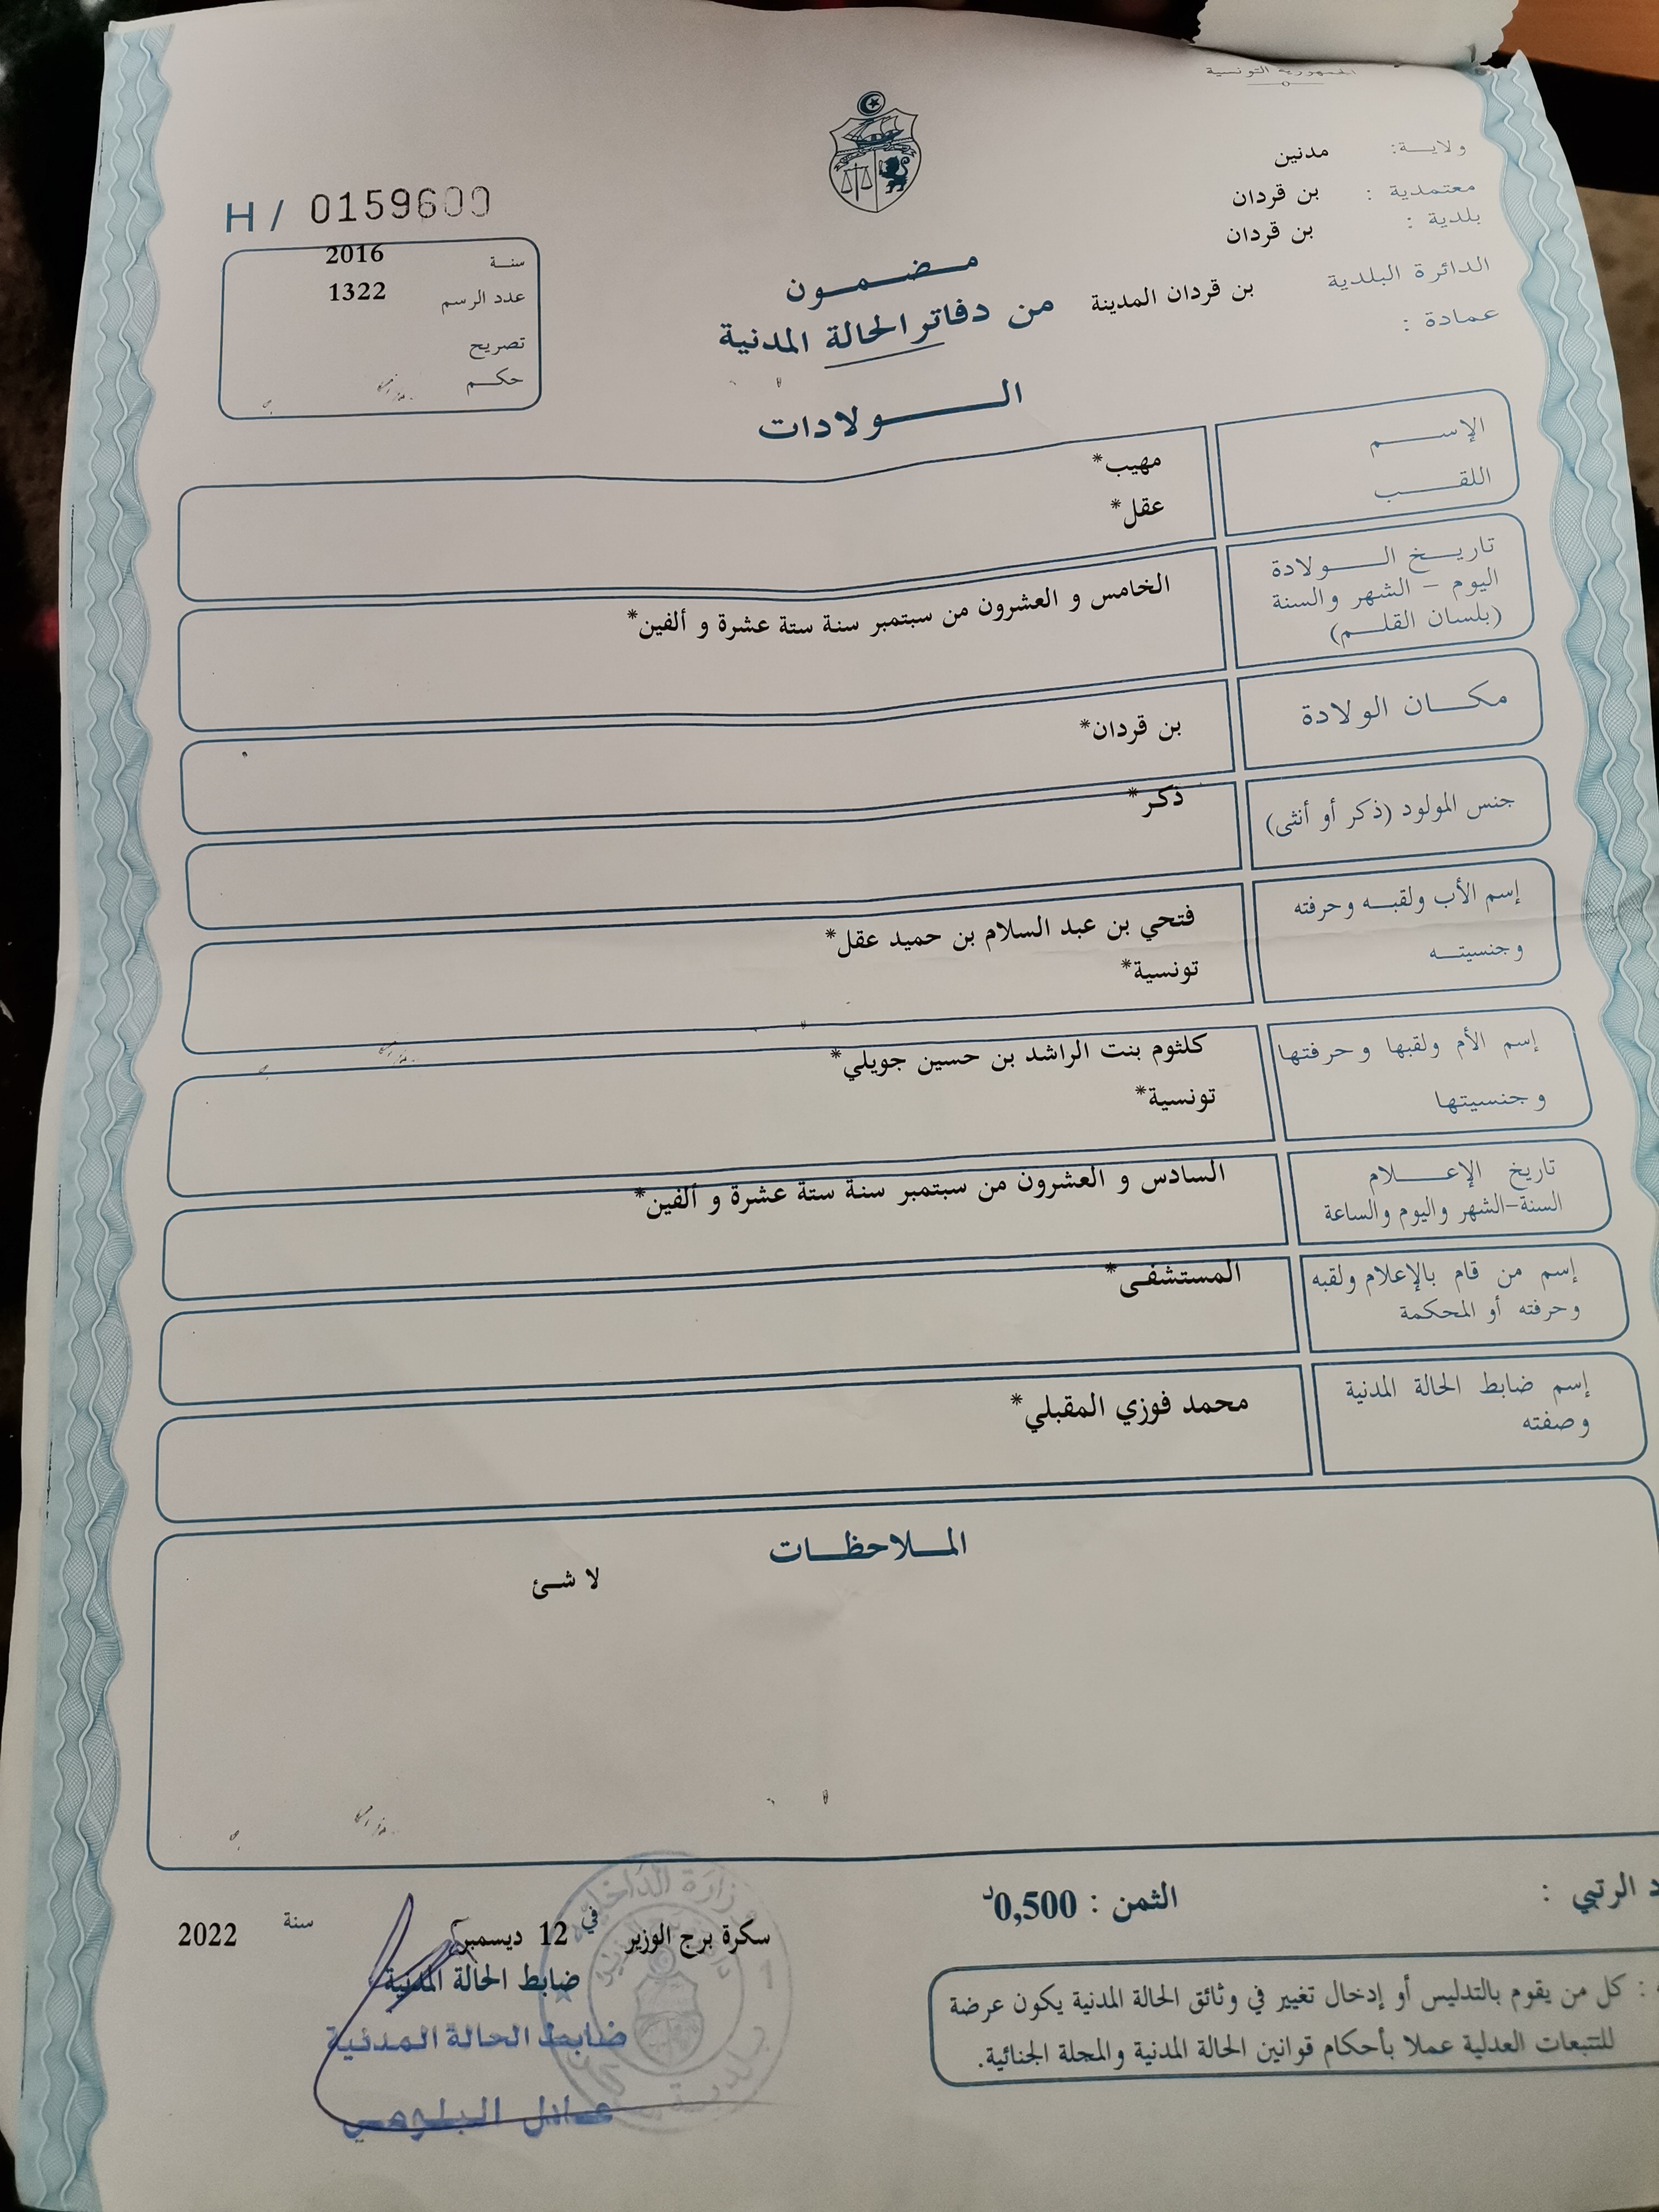 الجمهورية التونسية
ولاية: مدنين
معتمدية : بن قردان
بلدية : بن قردان
الدائرة البلدية بن قردان المدينة
عمادة :
H / 0159600
سنة 2016
عدد الرسم 1322
تصريح
حكم
مضمون
من دفاتر الحالة المدنية
الولادات
الإسم مهيب*
اللقب عقل*
تاريخ الولادة
اليوم - الشهر والسنة
(بلسان القلم)
الخامس و العشرون من سبتمبر سنة ستة عشرة و ألفين*
مكان الولادة بن قردان*
جنس المولود (ذكر أو أنثى) ذكر*
إسم الأب ولقبه وحرفته فتحي بن عبد السلام بن حميد عقل*
وجنسيته تونسية*
إسم الأم ولقبها وحرفتها كلثوم بنت الراشد بن حسين جويلي*
وجنسيتها تونسية*
تاريخ الإعلام السادس و العشرون من سبتمبر سنة ستة عشرة و ألفين*
السنة-الشهر واليوم والساعة
إسم من قام بالإعلام ولقبه المستشفى*
وحرفته أو المحكمة
إسم ضابط الحالة المدنية محمد فوزي المقبلي*
وصفته
الملاحظات
لا شئ
د الرتبي :
الثمن : 0,500د
سكرة برج الوزير في 12 ديسمبر سنة 2022
ضابط الحالة المدنية
ضابط الحالة المدنية
عادل
وزارة الداخلية
بلدية
: كل من يقوم بالتدليس أو إدخال تغيير في وثائق الحالة المدنية يكون عرضة
للتتبعات العدلية عملا بأحكام قوانين الحالة المدنية والمجلة الجنائية.